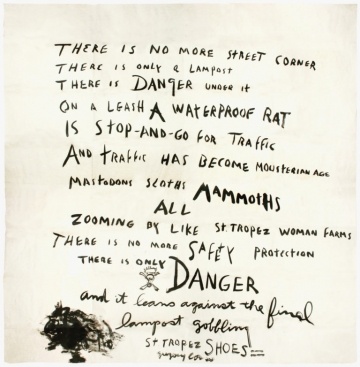 THERE IS NO MORE STREET CORNER
THERE IS ONLY A LAMPOST
THERE IS DANGER UNDER IT
ON A LEASH A WATERPROOF RAT
IS STOP-AND-GO FOR TRAFFIC
AND TRAFFIC HAS BECOME MOUSTERIAN AGE
MASTODONS SLOTHS MAMMOTHS
ALL
ZOOMING BY LIKE ST. TROPEZ WOMAN FARMS
THERE IS NO MORE SAFETY PROTECTION
THERE IS ONLY DANGER
and it leans against the final
lampost gobbling
ST TROPEZ SHOES
gregory